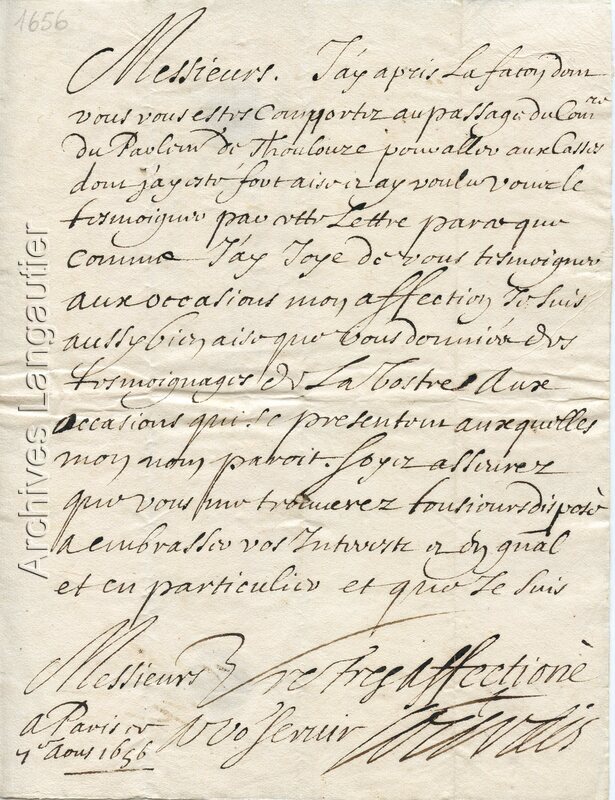 1656
Messieurs. J'ay apris La facon dont
vous vous estes Comportez au passage du Con.re
du Parlem.t de Thoulouze pour aller aux Casses
dont j'ay esté fort aise et ay voulu vous le
tesmoigner par cette Lettre parce que
comme J'ay Joye de vous tesmoigner
aux occasions mon affection Je suis
aussy bien aise que vous donniés des
tesmoignages de La Vostre Aux
occasions qui se presentent auxquelles
mon nom paroit. Soyez asseurez
que vous me trouverez tousiours disposé
a embrasser vos Interests et en gnal
et en particulier et que Je suis
Messieurs V're tres affectioné
a vo servir
A Paris ce
7e Aoust 1656
Archives Langautier